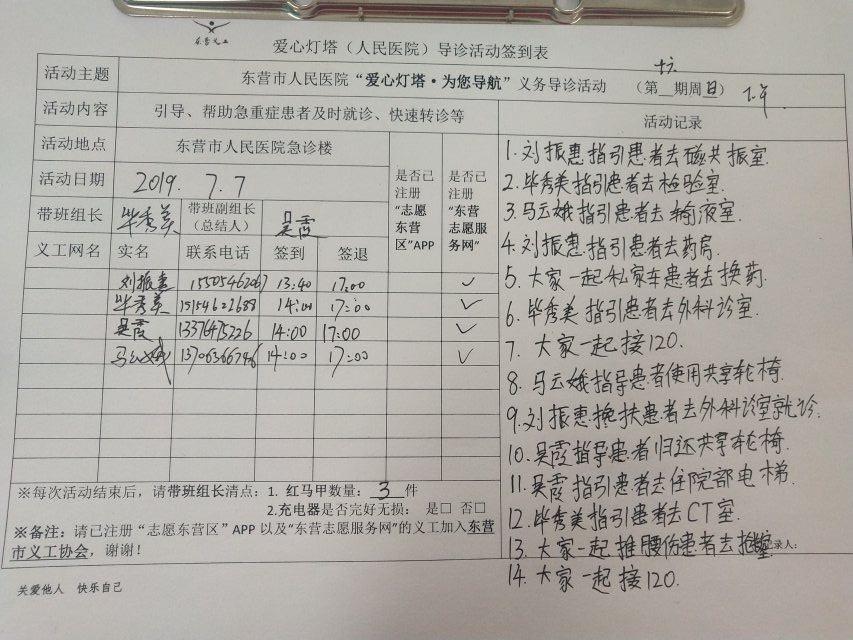 东营义工
爱心灯塔（人民医院）导诊活动签到表
活动主题 东营市人民医院“爱心灯塔·为您导航”义务导诊活动 （第__期周日） 下午
活动内容 引导、帮助急重症患者及时就诊、快速转诊等
活动地点 东营市人民医院急诊楼
活动日期 2019. 7. 7
带班组长 毕秀美 带班副组长（总结人） 吴霞
是否已注册“志愿东营区”APP
是否已注册“东营志愿服务网”
义工网名 实名 联系电话 签到 签退
刘振惠 15505462067 13:40 17:00 ✓
毕秀美 15154622688 14:00 17:00 ✓
吴霞 13376475226 14:00 17:00 ✓
马云娥 14:00 17:00 ✓
※每次活动结束后，请带班组长清点：1. 红马甲数量：3件
2.充电器是否完好无损： 是□ 否□
※备注：请已注册“志愿东营区”APP 以及“东营志愿服务网”的义工加入东营
市义工协会，谢谢！
关爱他人 快乐自己
活动记录
1. 刘振惠指引患者去磁共振室.
2. 毕秀美指引患者去检验室.
3. 马云娥指引患者去输液室.
4. 刘振惠指引患者去药房.
5. 大家一起私家车患者去换药.
6. 毕秀美指引患者去外科诊室.
7. 大家一起接120.
8. 马云娥指导患者使用共享轮椅.
9. 刘振惠搀扶患者去外科诊室就诊.
10. 吴霞指导患者归还共享轮椅.
11. 吴霞指引患者去住院部电梯
12. 毕秀美指引患者去CT室.
13. 大家一起推腰伤患者去抢救室
记录人：
14. 大家一起接120.